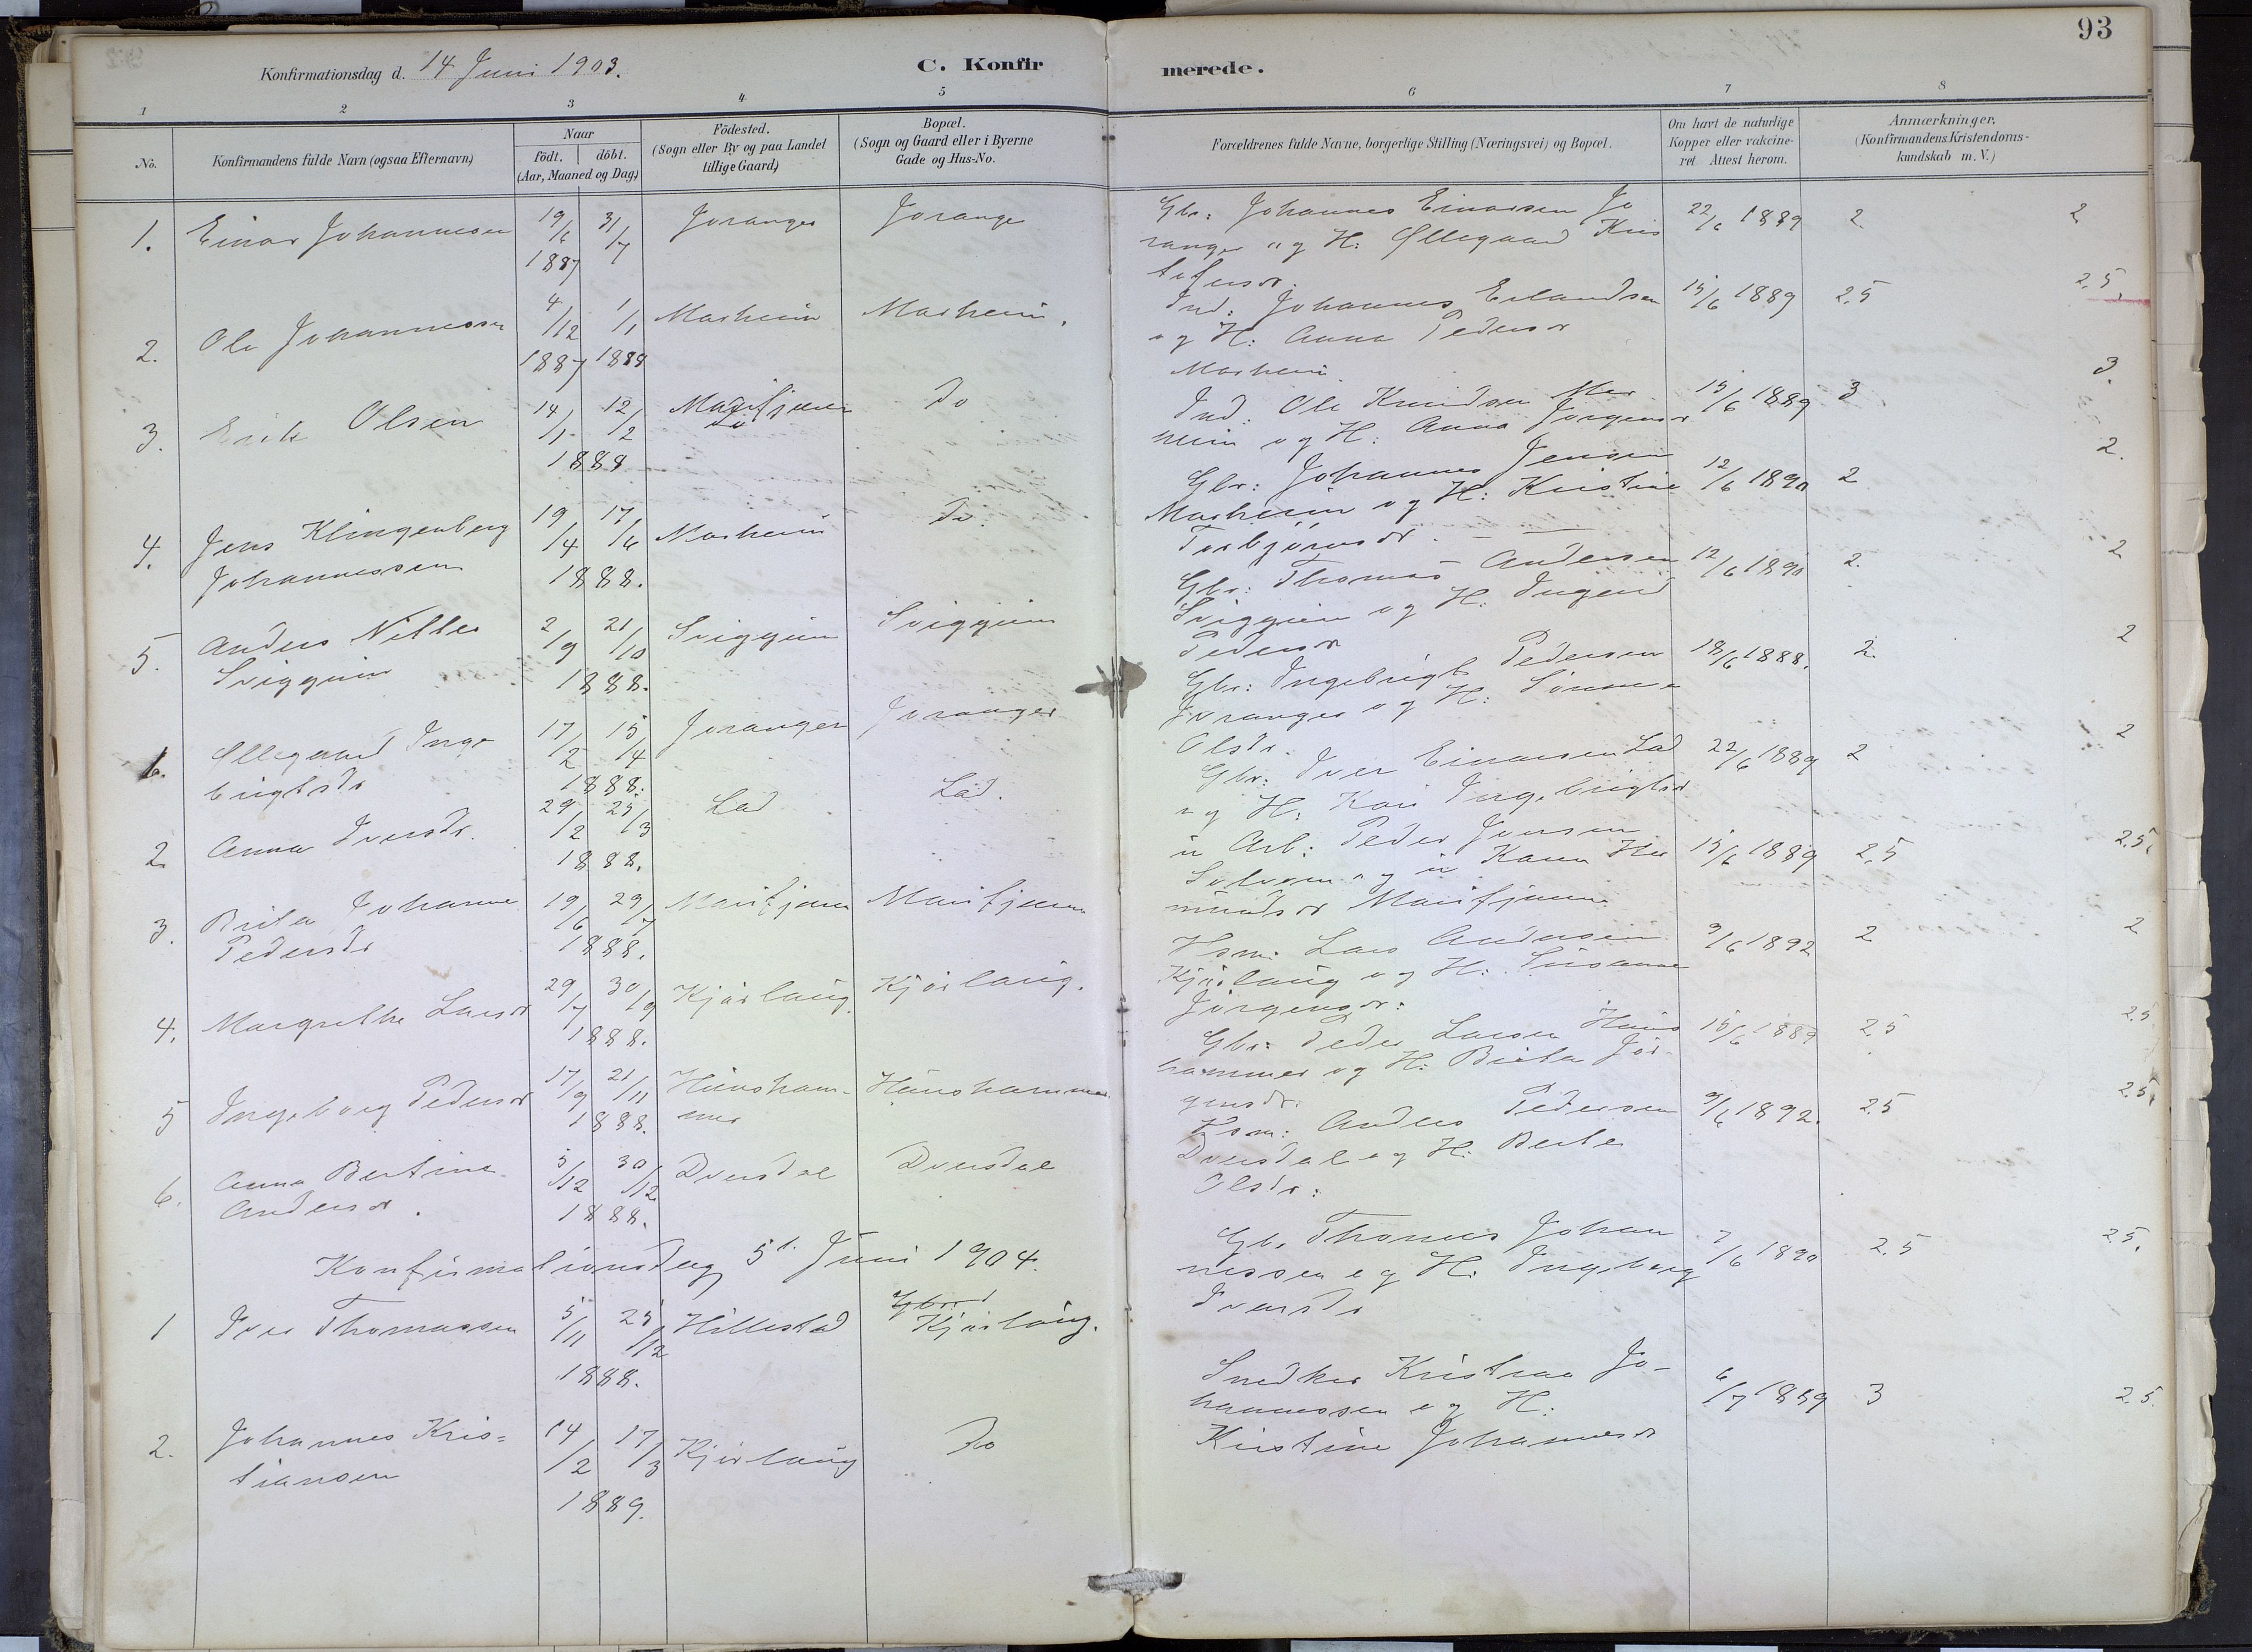 93
Konfirmationsdag d. 14 Juni 1903.
C. Konfirmerede.
1 2 3 4 5 6 7 8
No.
Konfirmandens fulde Navn (ogsaa Efternavn)
Naar
födt. döbt.
(Aar, Maaned og Dag)
Födested.
(Sogn eller By og paa Landet
tillige Gaard)
Bopæl.
(Sogn og Gaard eller i Byerne
Gade og Hus-No.
Forældrenes fulde Navne, borgerlige Stilling (Næringsvei) og Bopæl.
Om havt de naturlige
Kopper eller vakcine-
ret. Attest herom.
Anmærkninger.
(Konfirmandens Kristendoms-
kundskab m. V.)
1. Einar Johannesen 19/6 31/7 Joranger Joranger
1887
Gbr: Johannes Einarsen Jo
ranger og H: Øllegaard Kris
tofersdr.
22/6 1889 2 2
2. Ole Johannessen 4/12 1/1 Marheim Marheim.
1887 1888
Ind: Johannes Erlandsen
og H: Anna Pedersdr
Marheim
15/6 1889 2,5 2,5.
3. Erik Olsen 14/1 12/2 Marifjæren Do
1888
Ind: Ole Knudsen Mar
heim og H: Anna Jørgensdr
15/6 1889 3 3.
4. Jens Klingenberg 19/4 17/6 Marheim Do.
Johannessen 1888.
Gbr: Johannes Jensen
Marheim og H: Kristine
Torbjørnsdr.
12/6 1890 2 2.
5. Anders Nilles 2/9 21/10 Sviggum Sviggum
Sviggum 1888.
Gbr: Thomas Andersen
Sviggum og H: Ingerid
Pedersdr
12/6 1890 2. 2
1. Øllegaard Inge 17/2 15/4 Joranger Joranger
brigtsdr 1888.
Gbr: Ingebrigt Pedersen
Joranger og H: Synneva
Olsdr.
18/6 1888. 2. 2
2 Anna Iversdr. 29/2 25/3 Lad Lad.
1888.
Gbr: Iver Einarsen Lad
og H: Kari Ingebrigtsdr
22/6 1889 2 2
3. Brita Johanne 19/6 29/7 Marifjæren Marifjæren
Pedersdr 1888.
u Arb: Peder Jensen
Solvorn og u Karen Her
mundsdr Marifjæren
15/6 1889 2,5 2,5.
4. Margrethe Larsdr 29/7 30/9 Kjørlaug. Kjørlaug.
1888.
Hsm: Lars Andersen
Kjørlaug og H: Susanne
Jørgensdr:
9/6 1892 2 2
5 Ingeborg Pedersdr 17/9 21/11 Hunsham- Hunshammer
1888. mer
Gbr: Peder Larsen Huns
hammer og H: Brita Jør-
gensdr.
15/6 1889 2,5 2,5
6. Anna Bertine 5/12 30/12 Dversdal Dversdal
Andersdr. 1888.
Hsm: Anders Pedersen
Dversdal og H: Berte
Olsdr:
9/6 1892. 2,5 2,5.
Konfirmationsdag 5t. Juni 1904.
1 Iver Thomassen 5/11 25/12 Hillestad Kjørlaug.
1888.
Gbr. Thomas Johan
nessen og H: Ingeborg
Iversdr
7/6 1890 2,5 2,5.
2. Johannes Kris= 14/2 17/3 Kjørlaug Do
tiansen 1889.
Snedker Kristian Jo-
hannessen og H:
Kristine Johannesdr
6/7 1889 3 2,5.